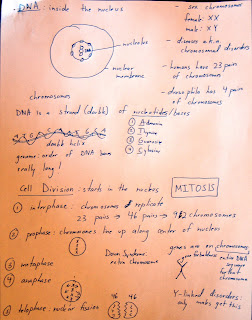 DNA: inside the nucleus
- sex chromosome
female: XX
male: XY
nucleolus
nuclear
membrane
- diseases a.k.a.
chromosomal disorders
- humans have 23 pairs
of chromosomes
- drosophila has 4 pairs
of chromosomes
chromosomes
DNA is a strand (double) of nucleotides/bases
double helix
① Adenine
② Thymine
③ Guanine
④ Cytosine
genome: order of DNA bases
really long!
Cell Division: starts in the nucleus
MITOSIS
① interphase: chromosomes replicate
23 pairs → 46 pairs → 92 chromosomes
② prophase: chromosomes line up along center of nucleus
③ metaphase
④ anaphase
Down Syndrome:
extra chromosome
genes are on chromosomes
entire DNA
sequence
for that
chromosome
46
46
⑤ telophase: nuclear fission
Y-linked disorders:
only males get this